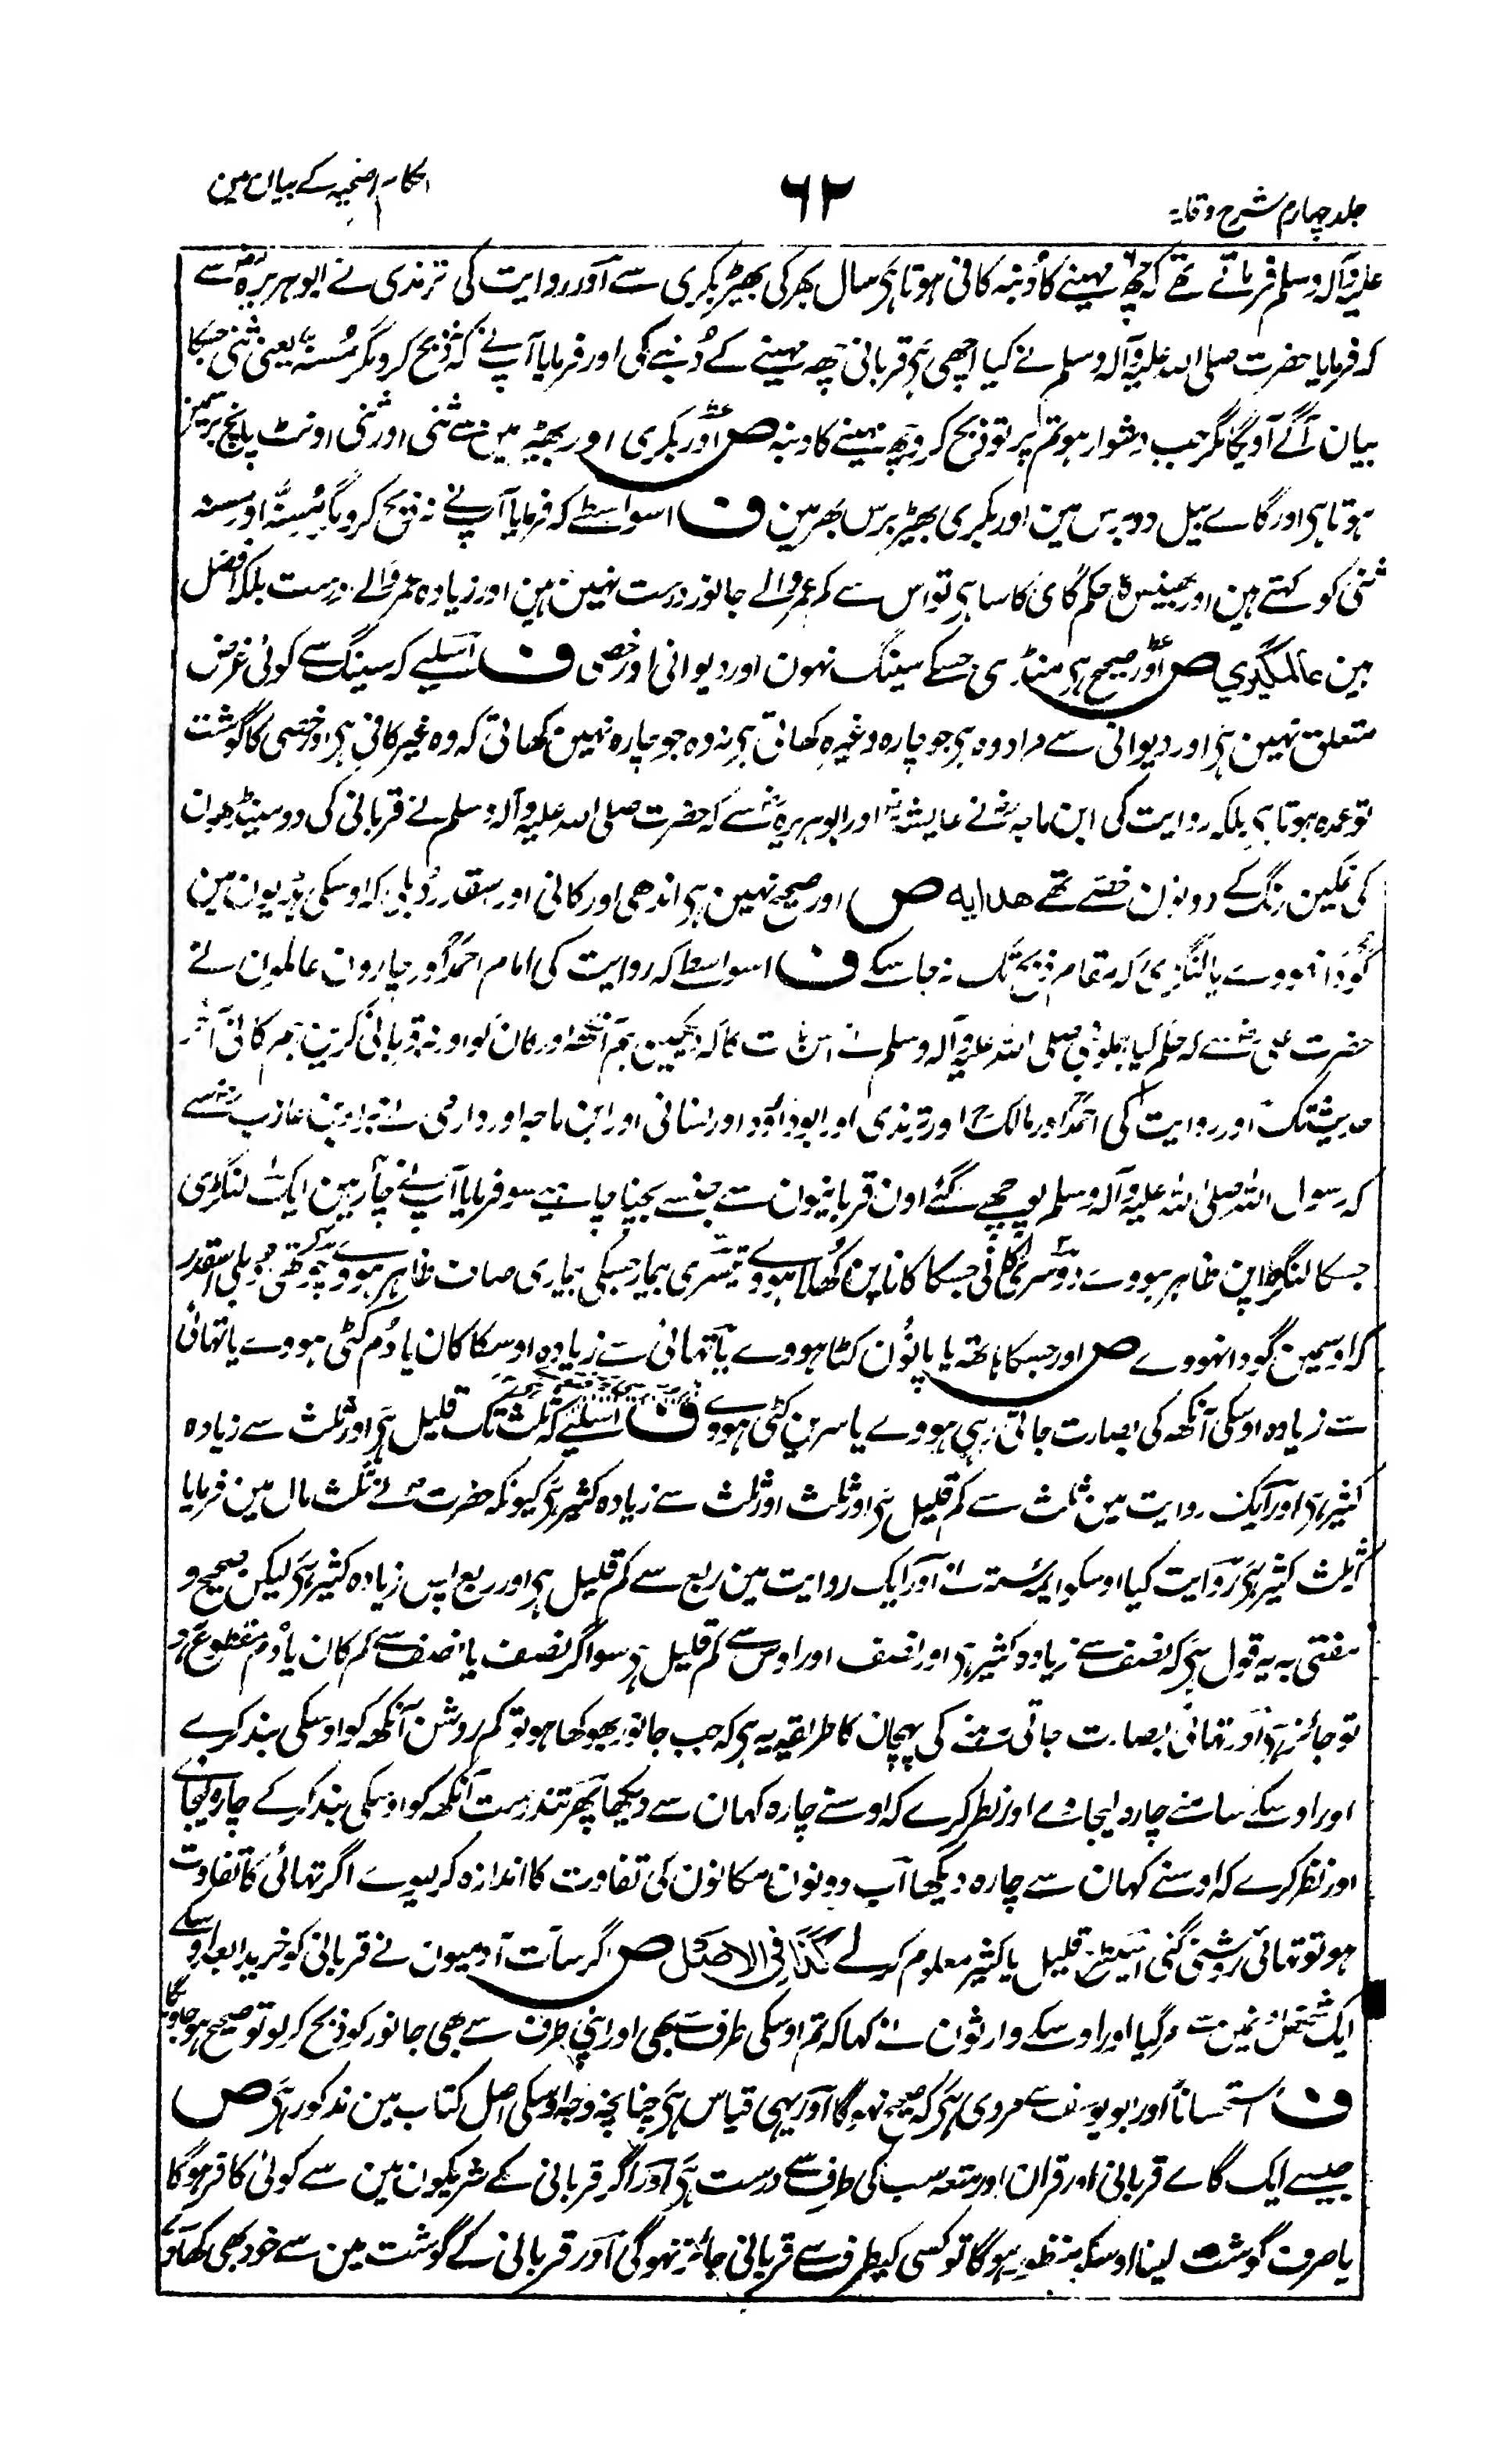 جلد چہارم شرح وقایہ
۶۲
احکام اضحیہ کے بیان مین
علیہ وآلہ وسلم فرماتے تھے کہ چھ مہینے کا دُنبہ کافی ہوتا ہی سال بھر کی بھیڑ بکری سے اور روایت کی ترمذی نے ابو ہریرہؓ سے
کہ فرمایا حضرت صلی اللہ علیہ وآلہ وسلم نے کیا اچھی ہی قربانی چھ مہینے کے دُنبے کی اور فرمایا آپ نے کہ نہ ذبح کرو مگر مُسنہ یعنی ثنی جسکا
بیان آگے آویگا مگر جب دشوار ہو تم پر تو ذبح کرو چھ مہینے کا دنبہ ص اور بکری اور بھیڑ مین سے ثنی اور ثنی اونٹ پانچ برس مین
ہوتا ہی اور گاے بیل دو برس مین اور بکری بھیڑ برس بھر مین ف اسواسطے کہ فرمایا آپ نے نہ ذبح کرو مگر مُسِنّہ اور مسنہ
ثنی کو کہتے ہین اور بھینس کا حکم گاے کا سا ہی تو اس سے کم عمر والے جانور درست نہین ہین اور زیادہ عمر والے درست بلکہ افضل
ہین عالمگیری ص اور صحیح ہی منڈی جسکے سینگ نہون اور دیوانی اور خصی ف اسلیے کہ سینگ سے کوئی غرض
متعلق نہین ہی اور دیوانی سے مراد وہ ہی جو چارہ وغیرہ کھاتی ہی نہ وہ جو چارہ نہین کھاتی کہ وہ غیر کافی ہی اور خصی کا گوشت
تو عمدہ ہوتا ہی بلکہ روایت کی ابن ماجہ نے عایشہؓ اور ابو ہریرہؓ سے کہ حضرت صلی اللہ علیہ وآلہ وسلم نے قربانی کی دو مینڈھون
کی نمکین رنگ کے دونون خصے تھے ھدایہ ص اور صحیح نہین ہی اندھی اور کانی اور اسقدر دُبلی کہ اوسکی ہڈیون مین
گودا نہووے یا لنگڑی کہ مقام ذبح تک نہ جا سکے ف اسواسطے کہ روایت کی امام احمدؒ اور چارون عالمون نے
حضرت علیؓ سے کہ حکم کیا ہمکو نبی صلی اللہ علیہ وآلہ وسلم نے اس بات کا کہ دیکھین ہم آنکھ اور کان کو اور نہ قربانی کرین ہم کانی آخر
حدیث تک اور روایت کی احمدؒ اور مالکؒ اور ترمذی اور ابوداؤد اور نسائی اور ابن ماجہ اور دارمی نے براء بن عازبؓ سے
کہ رسول اللہ صلی اللہ علیہ وآلہ وسلم پوچھے گئے اون قربانیون سے جنسے بچنا چاہیے سو فرمایا آپ نے چار ہین ایک لنگڑی
جسکا لنگڑاپن ظاہر ہووے دوسری کانی جسکا کاناپن کھلا ہووے تیسری بیمار جسکی بیماری صاف ظاہر ہووے چوتھی دبلی اسقدر
کہ اوسمین گودا نہووے ص اور جسکا ہاتھ یا پانؤن کٹا ہووے یا تہائی سے زیادہ اوسکا کان یا دُم کٹی ہووے یا تہائی
سے زیادہ اوسکی آنکھ کی بصارت جاتی رہی ہووے یا سرین کٹی ہووے ف اسلیے کہ ثلث تک قلیل ہی اور ثلث سے زیادہ
کثیر ہی اور ایک روایت مین ثلث سے کم قلیل ہی اور ثلث اور ثلث سے زیادہ کثیر ہی کیونکہ حضرتؐ نے ثلث مال مین فرمایا
ثلث کثیر ہی روایت کیا اوسکو ایمہ ستہ نے اور ایک روایت مین ربع سے کم قلیل ہی اور ربع پس زیادہ کثیر ہی لیکن صحیح و
مفتی بہ یہ قول ہی کہ نصف سے زیادہ کثیر ہی اور نصف اور اوس سے کم قلیل ہی سو اگر نصف یا نصف سے کم کان یا دُم مقطوع ہو
تو جائز ہی اور تہائی بصارت جاتی رہنے کی پہچان کا طریقہ یہ ہی کہ جب جانور بھوکھا ہو تو کم روشن آنکھ کو اوسکی بند کرے
اور اوسکے سامنے چارہ لیجاوے اور نظر کرے کہ اوسنے چارہ کہان سے دیکھا پھر تندرست آنکھ کو اوسکی بند کرکے چارہ لیجاوے
اور نظر کرے کہ اوسنے کہان سے چارہ دیکھا اب دونون مکانون کی تفاوت کا اندازہ کر لیوے اگر تہائی کا تفاوت
ہو تو تہائی روشنی گئی اسیطرح قلیل یا کثیر معلوم کر لے کذا فی الاصل ص اگر سات آدمیون نے قربانی کو خریدا بعد اوسکے
ایک شخص اونمین سے مر گیا اور اوسکے وارثون نے کہا کہ تم اوسکی طرف سے بھی اور اپنی طرف سے بھی جانور کو ذبح کر لو تو صحیح ہو جاویگا
ف استحسانًا اور ابو یوسف سے مروی ہی کہ صحیح نہوگا اور یہی قیاس ہی چنانچہ وجہ اوسکی اصل کتاب مین مذکور ہی ص
جیسے ایک گاے قربانی اور قران اور متعہ سب کی طرف سے درست ہی اور اگر قربانی کے شریکون مین سے کوئی کافر ہوگا
یا صرف گوشت لینا اوسکو منظور ہوگا تو کسی کیطرف سے قربانی جائز نہوگی اور قربانی کے گوشت مین سے خود بھی کھاوے